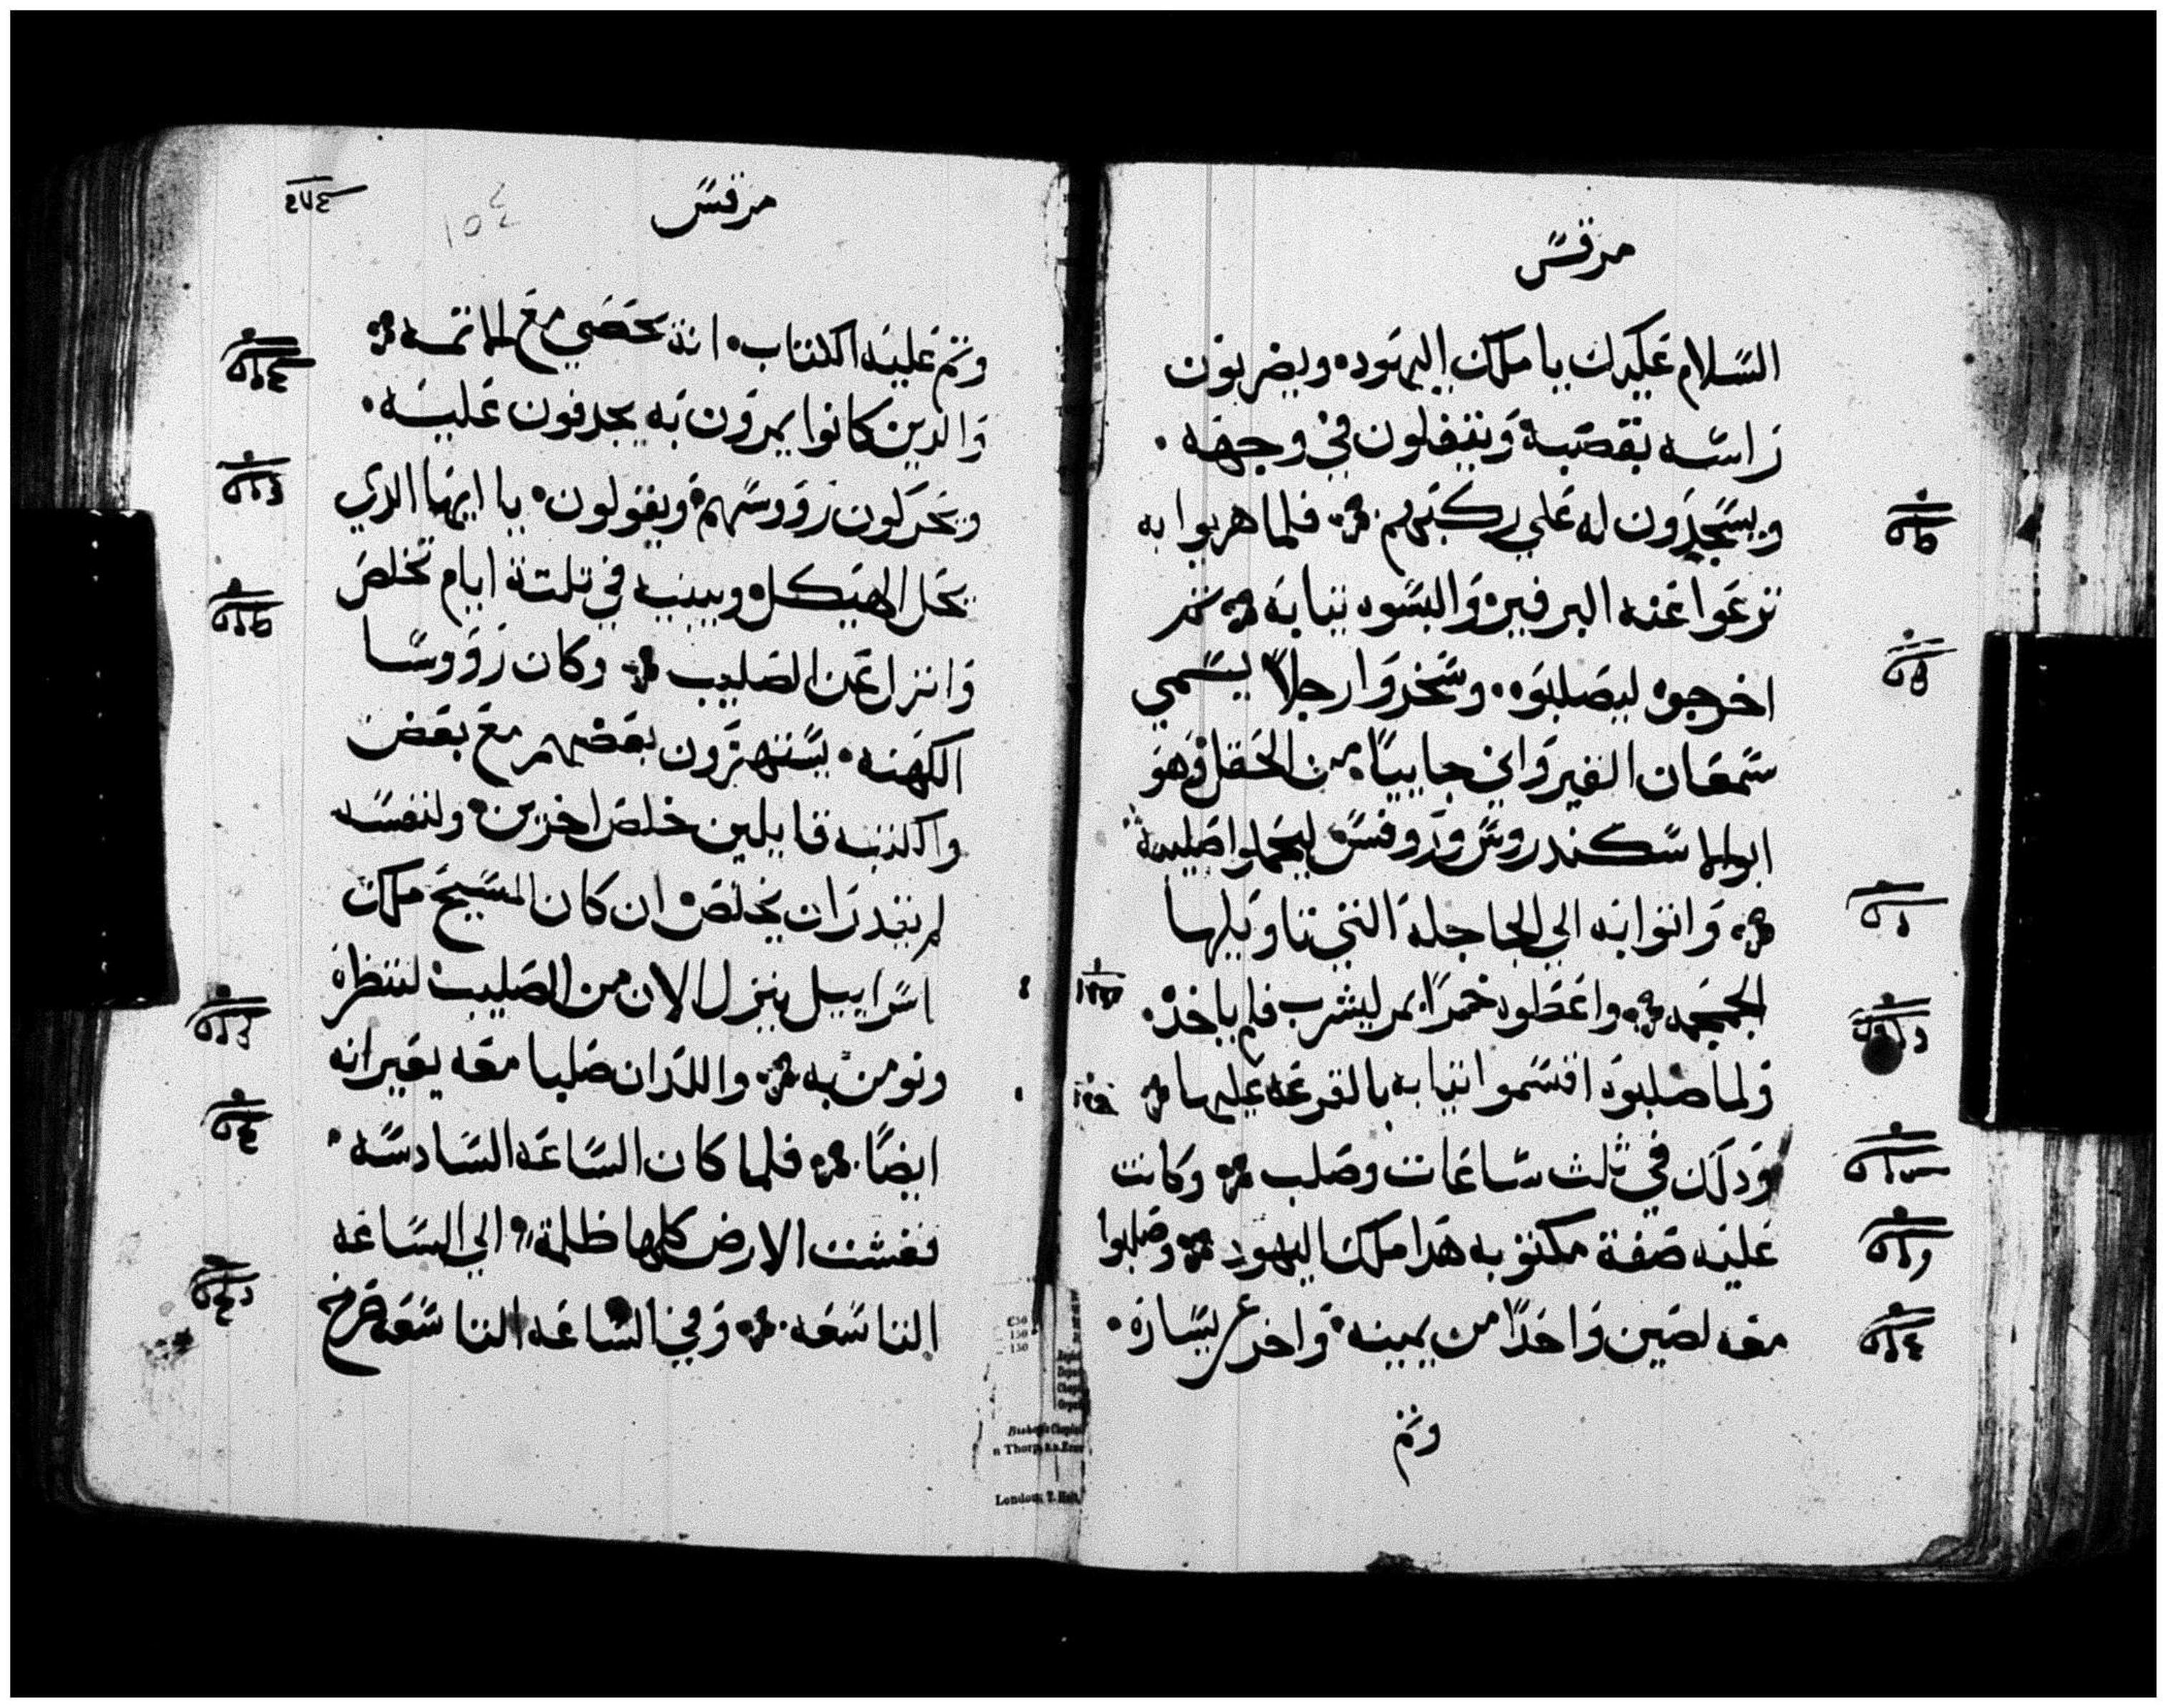 مرقس
السلام عليك يا ملك اليهود ويضربون
راسه بقصبة ويتفلون في وجهه
ويسجدون له علي ركبهم فلما هزيوا به
نزعوا عنه البرفير والبسوه ثيابه ثم
اخرجوه ليصلبوه وسخروا رجلاً يسمي
سمعان القيرواني جاييًا من الحقل وهو
ابو الاسكندروس وروفس ليحملوا صليبه
واتوا به الي الجاجلة التي تاويلها
الجمجمه واعطوه خمرًا بمر ليشرب فلم ياخذه
ولما صلبوه اقتسموا ثيابه بالقرعه عليها
ودلك في ثلث ساعات وصلب وكانت
عليه صفة مكتوبه هدا ملك اليهود وصلبوا
معه لصين واحدًا من يمينه واخر عن يساره
وتم
مرقس
٢٧٤
١٥٤
وتم عليه الكتاب انه يحصي مع الاثمه
والدين كانوا يمرون به يجدفون عليه
ويحركون رووسهم ويقولون يا ايها الدي
يحل الهيكل ويبنيه في تلتة ايام تخلص
وانزل عن الصليب وكان رووسا
الكهنه يستهزون بعضهم مع بعض
والكتبه قايلين خلص اخرين ولنفسه
لم يقدر ان يخلص ان كان المسيح ملك
اسراييل ينزل الان من الصليب لننظره
ونومن به واللدان صلبا معه يعيرانه
ايضًا فلما كان الساعه السادسه
فغشت الارض كلها ظلمة الي الساعه
التاسعه وفي الساعه التاسعه صرخ
London